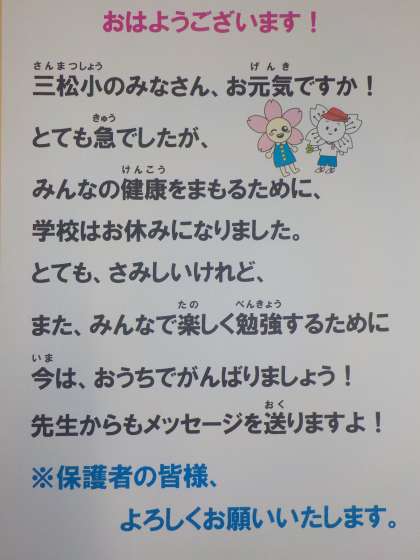 おはようございます！
さんまつしょう げんき
三松小のみなさん、お元気ですか！
きゅう
とても急でしたが、
けんこう
みんなの健康をまもるために、
学校はお休みになりました。
とても、さみしいけれど、
たの べんきょう
また、みんなで楽しく勉強するために
いま
今は、おうちでがんばりましょう！
おく
先生からもメッセージを送りますよ！
※保護者の皆様、
よろしくお願いいたします。